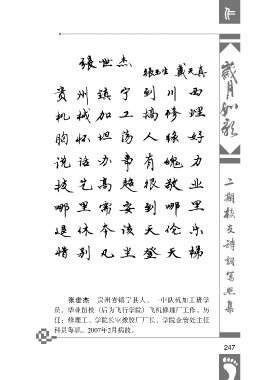 张世杰
张玉生 戴天真
贵州镇宁到川西
机械加工搞修理
胸怀坦荡人缘好
说话办事有魄力
技艺高超很敬业
哪里需要到哪里
退休本该天伦乐
惜别凡尘登天梯
张世杰 贵州省镇宁县人。一中队机加工班学
员，毕业留校（后为飞行学院）飞机修理厂工作。历
任：修理工、学院长空橡胶厂厂长、学院企管处主任
科员等职。2007年2月病故。
作
岁月如歌
二期校友诗词写照集
247